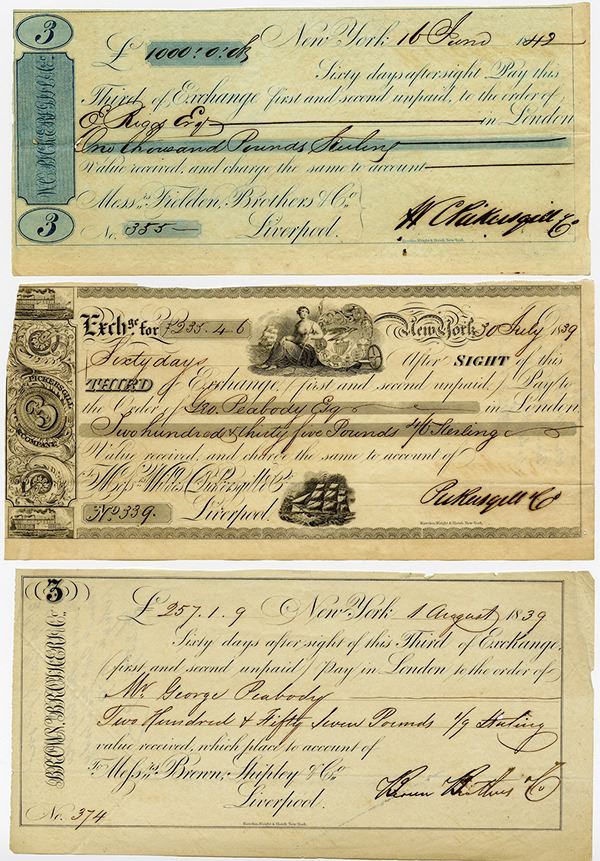 3
£ 1000: 0: 0 New York 16 June 1842
Sixty days after sight Pay this
Third of Exchange first and second unpaid, to the order of
E Riggs Esq in London
One thousand Pounds Sterling
Value received, and charge the same to account
Mess.rs Fielden, Brothers & Co.
No. 355 Liverpool.
W C Pickersgill & Co
3
W.C. PICKERSGILL & Co.
Rawdon, Wright & Hatch, New York.
Exchge for £235.4.6 New York 30 July 1839
Sixty days After SIGHT of this
THIRD of Exchange, (first and second unpaid,) Pay to
the Order of Geo. Peabody Esq in London,
Two hundred & thirty five Pounds 4/6 Sterling
Value received, and charge the same to account of
Mess.rs Wildes, Pickersgill & Co
No 339. Liverpool.
Pickersgill & Co
PICKERSGILL
3
& COMPANY
Rawdon, Wright & Hatch, New York.
3
£ 257.1.9 New York 1 August 1839
Sixty days after sight of this Third of Exchange,
(first and second unpaid) Pay in London to the order of
Mr. George Peabody
Two Hundred & Fifty Seven Pounds 1/9 Sterling
value received, which place to account of
To Mess.rs Brown, Shipley & Co.
Liverpool.
Brown Brothers & Co
No. 374
BROWN, BROTHERS & Co.
Rawdon, Wright & Hatch, New York.